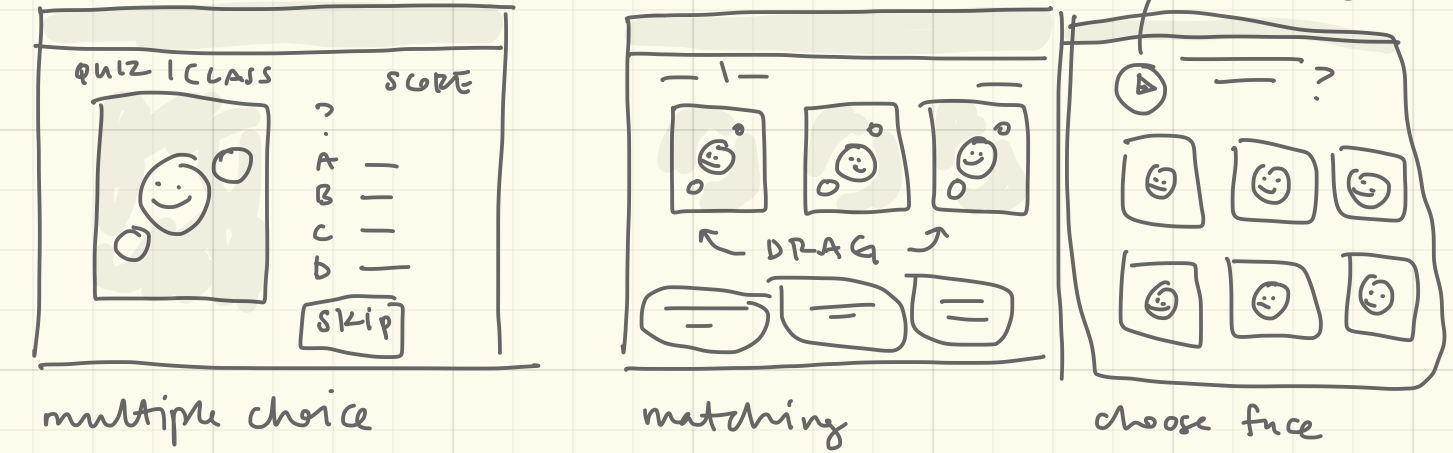 QUIZ | CLASS
SCORE
?
A
B
C
D
Skip
multiple choice
DRAG
matching
?
choose face